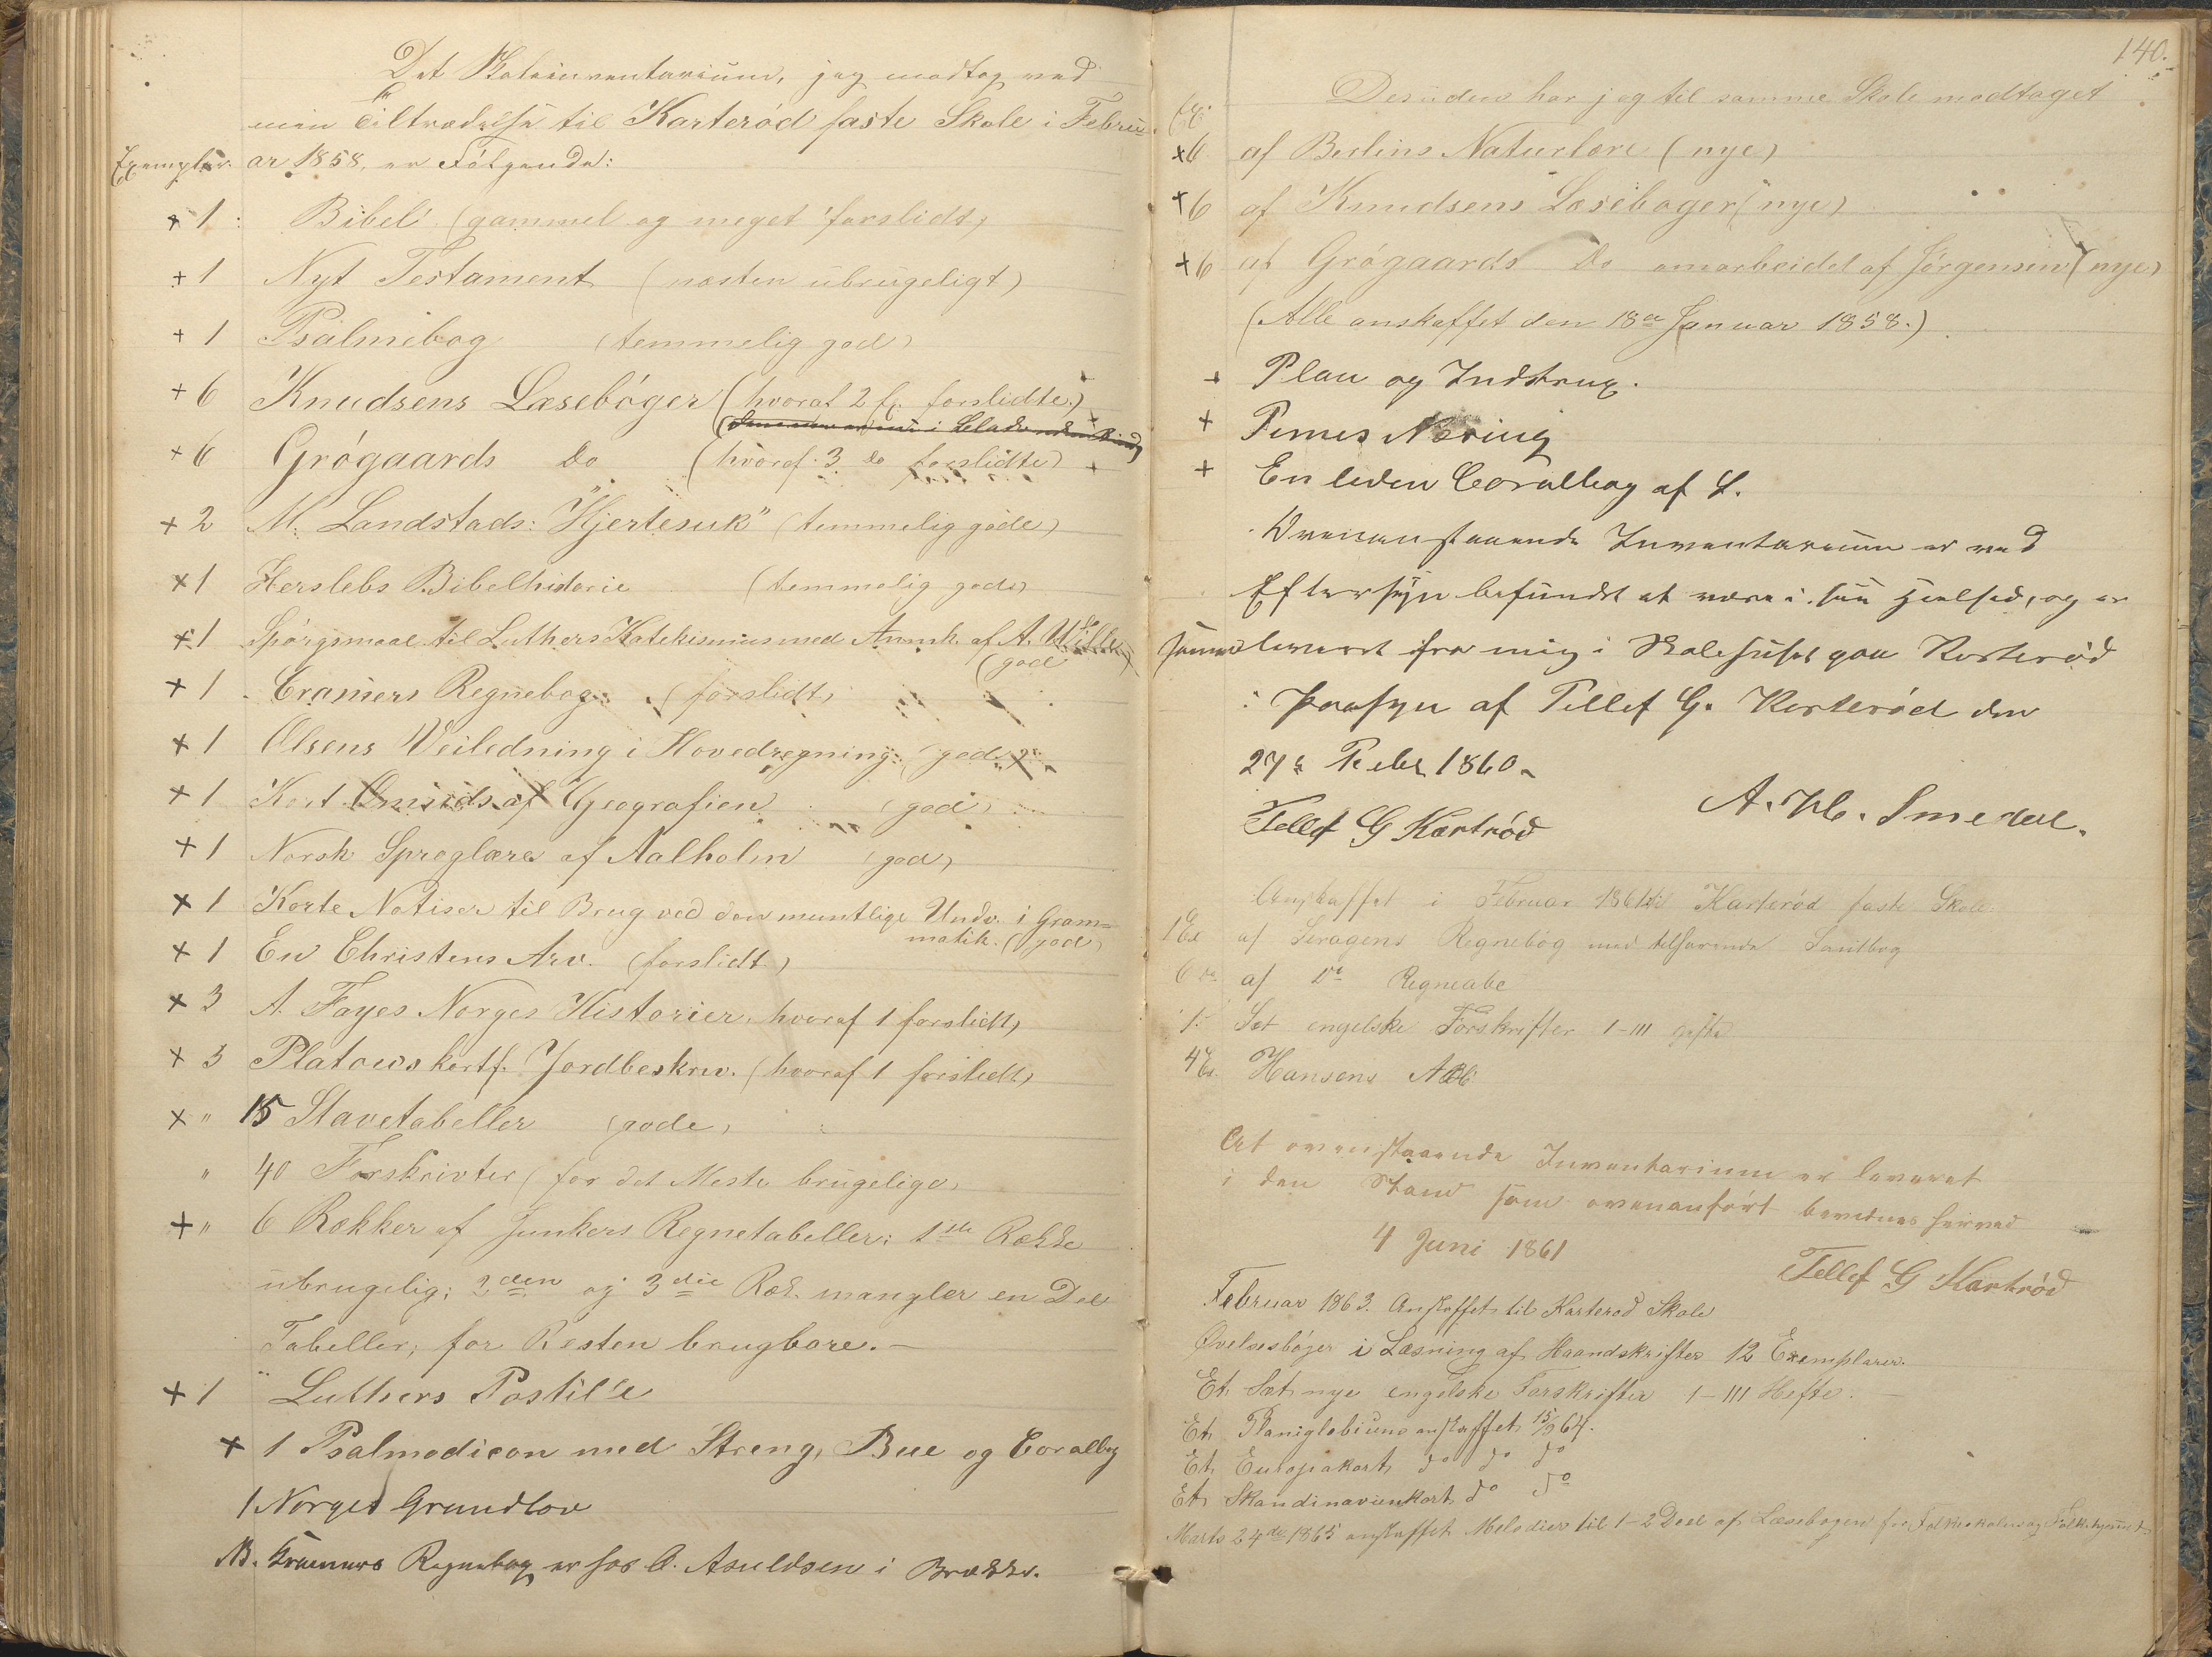 Det Skoleinventarium, jeg modtog ved
min Tiltrædelse til Karterød faste Skole i Febru-
Exemplar. ar 1858, er Følgende:
+ 1 : Bibel (gammel og meget forslidt)
+ 1 Nyt Testament (næsten ubrugeligt)
+ 1 Psalmebog (temmelig god)
+ 6 Knudsens Læsebøger (hvoraf 2 Ex. forslidte.) +
+ 6 Grøgaards Do (hvoraf 3 Do forslidte) +
+ 2 M. Landstads: "Hjertesuk" (temmelig gode)
+ 1 Herslebs Bibelhistorie (temmelig gode)
+ 1 Spørgsmaal til Luthers Katekismus med Anmk. af A. Wille
(god)
+ 1 Cramers Regnebog (forslidt)
+ 1 Olsens Veiledning i Hovedregning (god)
+ 1 Kort Omrids af Geografien (god)
+ 1 Norsk Sproglære af Aalholm (god)
+ 1 Korte Notiser til Brug ved den muntlige Undv. i Gram=
matik. (god)
+ 1 En Christens Arv. (forslidt)
+ 3 A. Fayes Norges Historier, hvoraf 1 forslidt)
+ 3 Platous kortf. Jordbeskriv. (hvoraf 1 forslidt)
+ " 15 Stavetabeller (gode)
" 40 Forskrivter (for det Meste brugelige)
+ " 6 Rækker af Junkers Regnetabeller; 1ste Række
ubrugelig; 2den og 3die Ræk. mangler en Del
Tabeller, for Resten brugbare. —
+ 1 Luthers Postille
+ 1 Psalmodicon med Streng, Bue og Coralbog
1 Norges Grundlov
NB. Kramers Regnebog er hos O. Asuldsen i Brække.
140.
Desuden har jeg til samme Skole modtaget
Ex.
+6 af Berlins Naturlære (nye)
+6 af Knudsens Læsebøger (nye)
+6 af Grøgaards Do omarbeidet af Jørgensen (nye)
(Alle anskaffet den 18de Januar 1858.)
+ Plan og Indstrux.
+ Pines Næring
+ En liden Coralbog af L.
Ovenanstaaende Inventarium er ved
Eftersyn befundet at være i sin Heelhed, og er
leveret fra mig i Skolehuset paa Karterød
i Paasyn af Tellef G. Karterød den
27de Febr 1860.
A. Chr. Smedal.
Tellef G Kartrød
Anskaffet i Februar 1861 til Karterød faste Skole:
1 Ex af Seragens Regnebog med tilhørende Facitbog
6 Do af Do Regneabc
1. Sæt engelske Forskrifter I-III Hefte
4 Ex. Hansens ABC
At ovenstaaende Inventarium er leveret
i den Stand som ovenanført bevidnes herved
4 Juni 1861
Tellef G Kartrød
Februar 1863. Anskaffet til Karterød Skole
Øvelsesbøger i Læsning af Haandskrifter 12 Exemplarer.
Et Sæt nye engelske Forskrifter I-III Hefte. —
Et Planiglobium anskaffet 15/9 64.
Et Europakart do do do
Et Skandinavienkart do do
Marts 24de 1865 anskaffet Melodier til 1-2 Deel af Læsebogen for Folkeskolen og Folkehjemmet